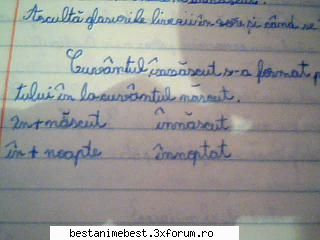 Ascultă glasurile liniei în sus și când se
Cuvântul înnăscut s-a format p
tului în la cuvântul născut.
în + născut înnăscut
în + noapte înnoptat
bestanimebest.3xforum.ro